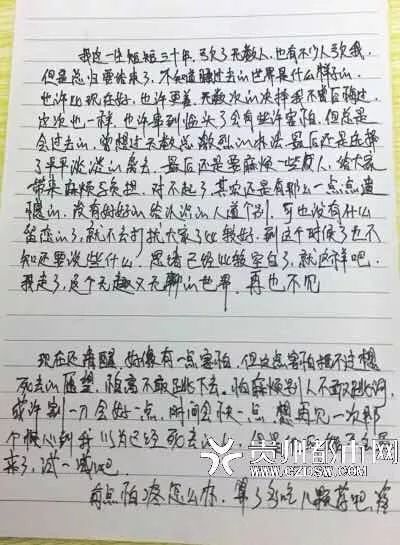 我这一生短短三十年,欠了无数人,也有不少人欠我,
但是总归要结束了,不知道睡过去的世界是什么样子的,
也许比现在好,也许更差,无数次的决择我不曾后悔过,
这次也一样,也许事到临头了会有些许害怕,但总是
会过去的,曾想过无数或激烈的办法,最后还是选择
了平平淡淡的离去,最后还是要麻烦一些人,给大家
带来麻烦与负担,对不起了,其实还是有那么一点点遗
憾的,没有好好的给次次的人道个别,可也没有什么
留恋的了,就不去打扰大家了比较好,到这个时候了也不
知还要说些什么,思绪已经比较空白了,就这样吧,
我走了,这个无趣又无聊的世界,再也不见
现在还清醒,好像有一点害怕,但这点害怕抵不过想
死去的愿望,怕高不敢跳下去,怕麻烦别人不敢跳河,
或许割一刀会好一点,时间会快一点,想再见一次那
个 我以为已经死去
来了,试一试吧
有点怕疼怎么办,算了多吃几颗药吧,
贵州都市网
WWW.GZDSW.COM